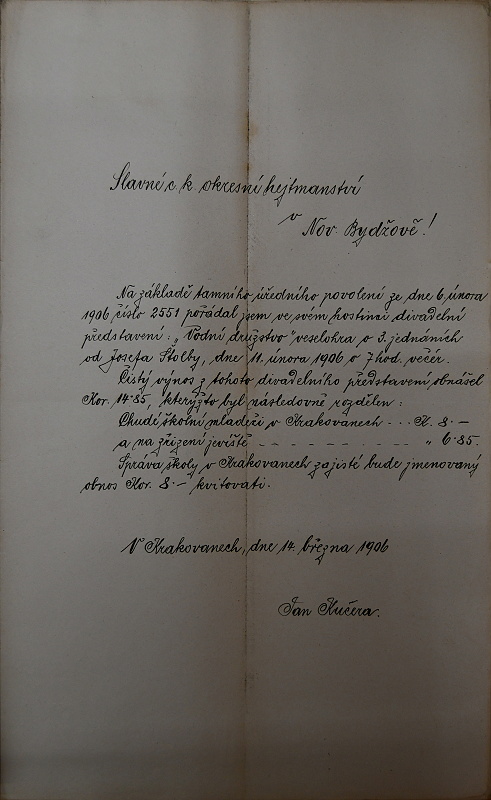 Slavné c. k. okresní hejtmanství
v
Nov. Bydžově!
Na základě tamního úředního povolení ze dne 6. února
1906 číslo 2551 pořádal jsem ve svém hostinci divadelní
představení: „Vodní družstvo" veselohra o 3. jednáních
od Josefa Štolby, dne 11. února 1906 o 7 hod. večer.
Čistý výnos z tohoto divadelního představení obnášel
Kor. 14·85, kterýžto byl následovně rozdělen:
Chudé školní mládeži v Krakovanech - . . K. 8.—
a na zřízení jeviště - - - - - - - - „ 6·85.
Správa školy v Krakovanech zajisté bude jmenovaný
obnos Kor. 8·- kvitovati.
V Krakovanech, dne 14. března 1906
Jan Kučera.